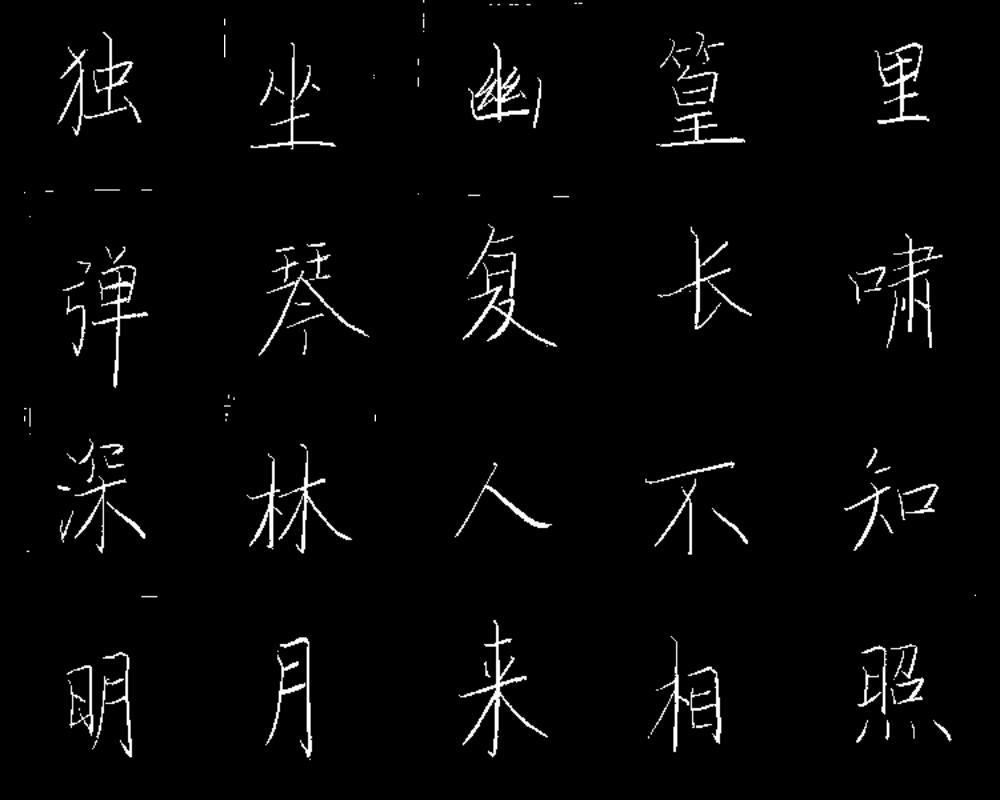 独坐幽篁里
弹琴复长啸
深林人不知
明月来相照